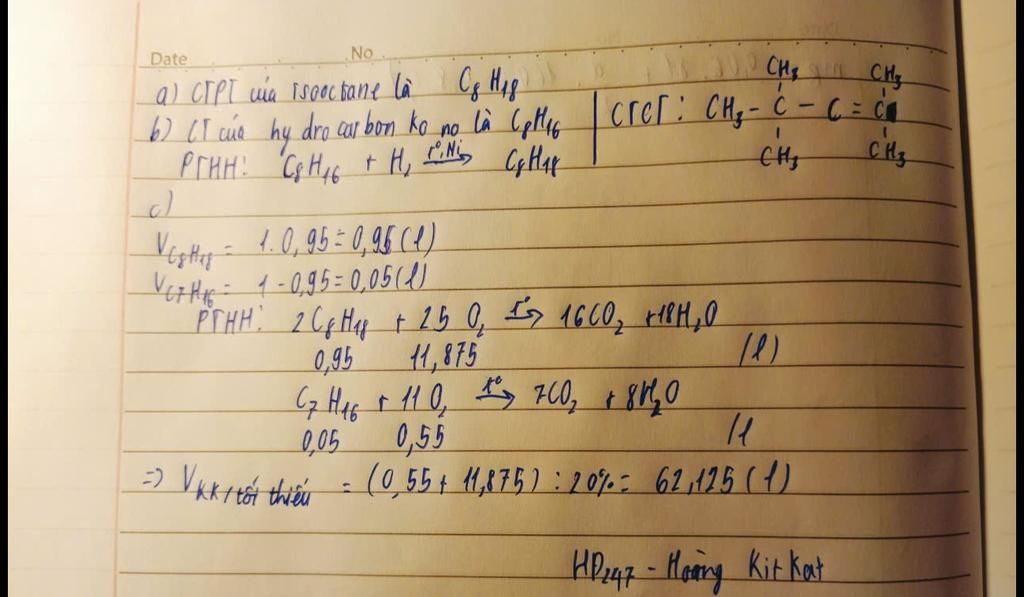 Date No
a) CTPT của isooctane là C₈H₁₈
b) CT của hydrocarbon ko no là C₈H₁₆
PTHH: C₈H₁₆ + H₂ t°, Ni → C₈H₁₈
CH₃ CH₃
CTCT: CH₃ - C - C = C
CH₃ CH₃
c)
V C₈H₁₈ = 1.0,95 = 0,95 (l)
V C7H₁₆ = 1 - 0,95 = 0,05 (l)
PTHH: 2C₈H₁₈ + 25 O₂ t° → 16CO₂ + 18H₂O
0,95 11,875 (l)
C₇H₁₆ + 11O₂ t° → 7CO₂ + 8H₂O
0,05 0,55 (l
=> V KK, tối thiểu = (0,55 + 11,875) : 20% = 62,125 (l)
HD247 - Hoàng Kit Kat